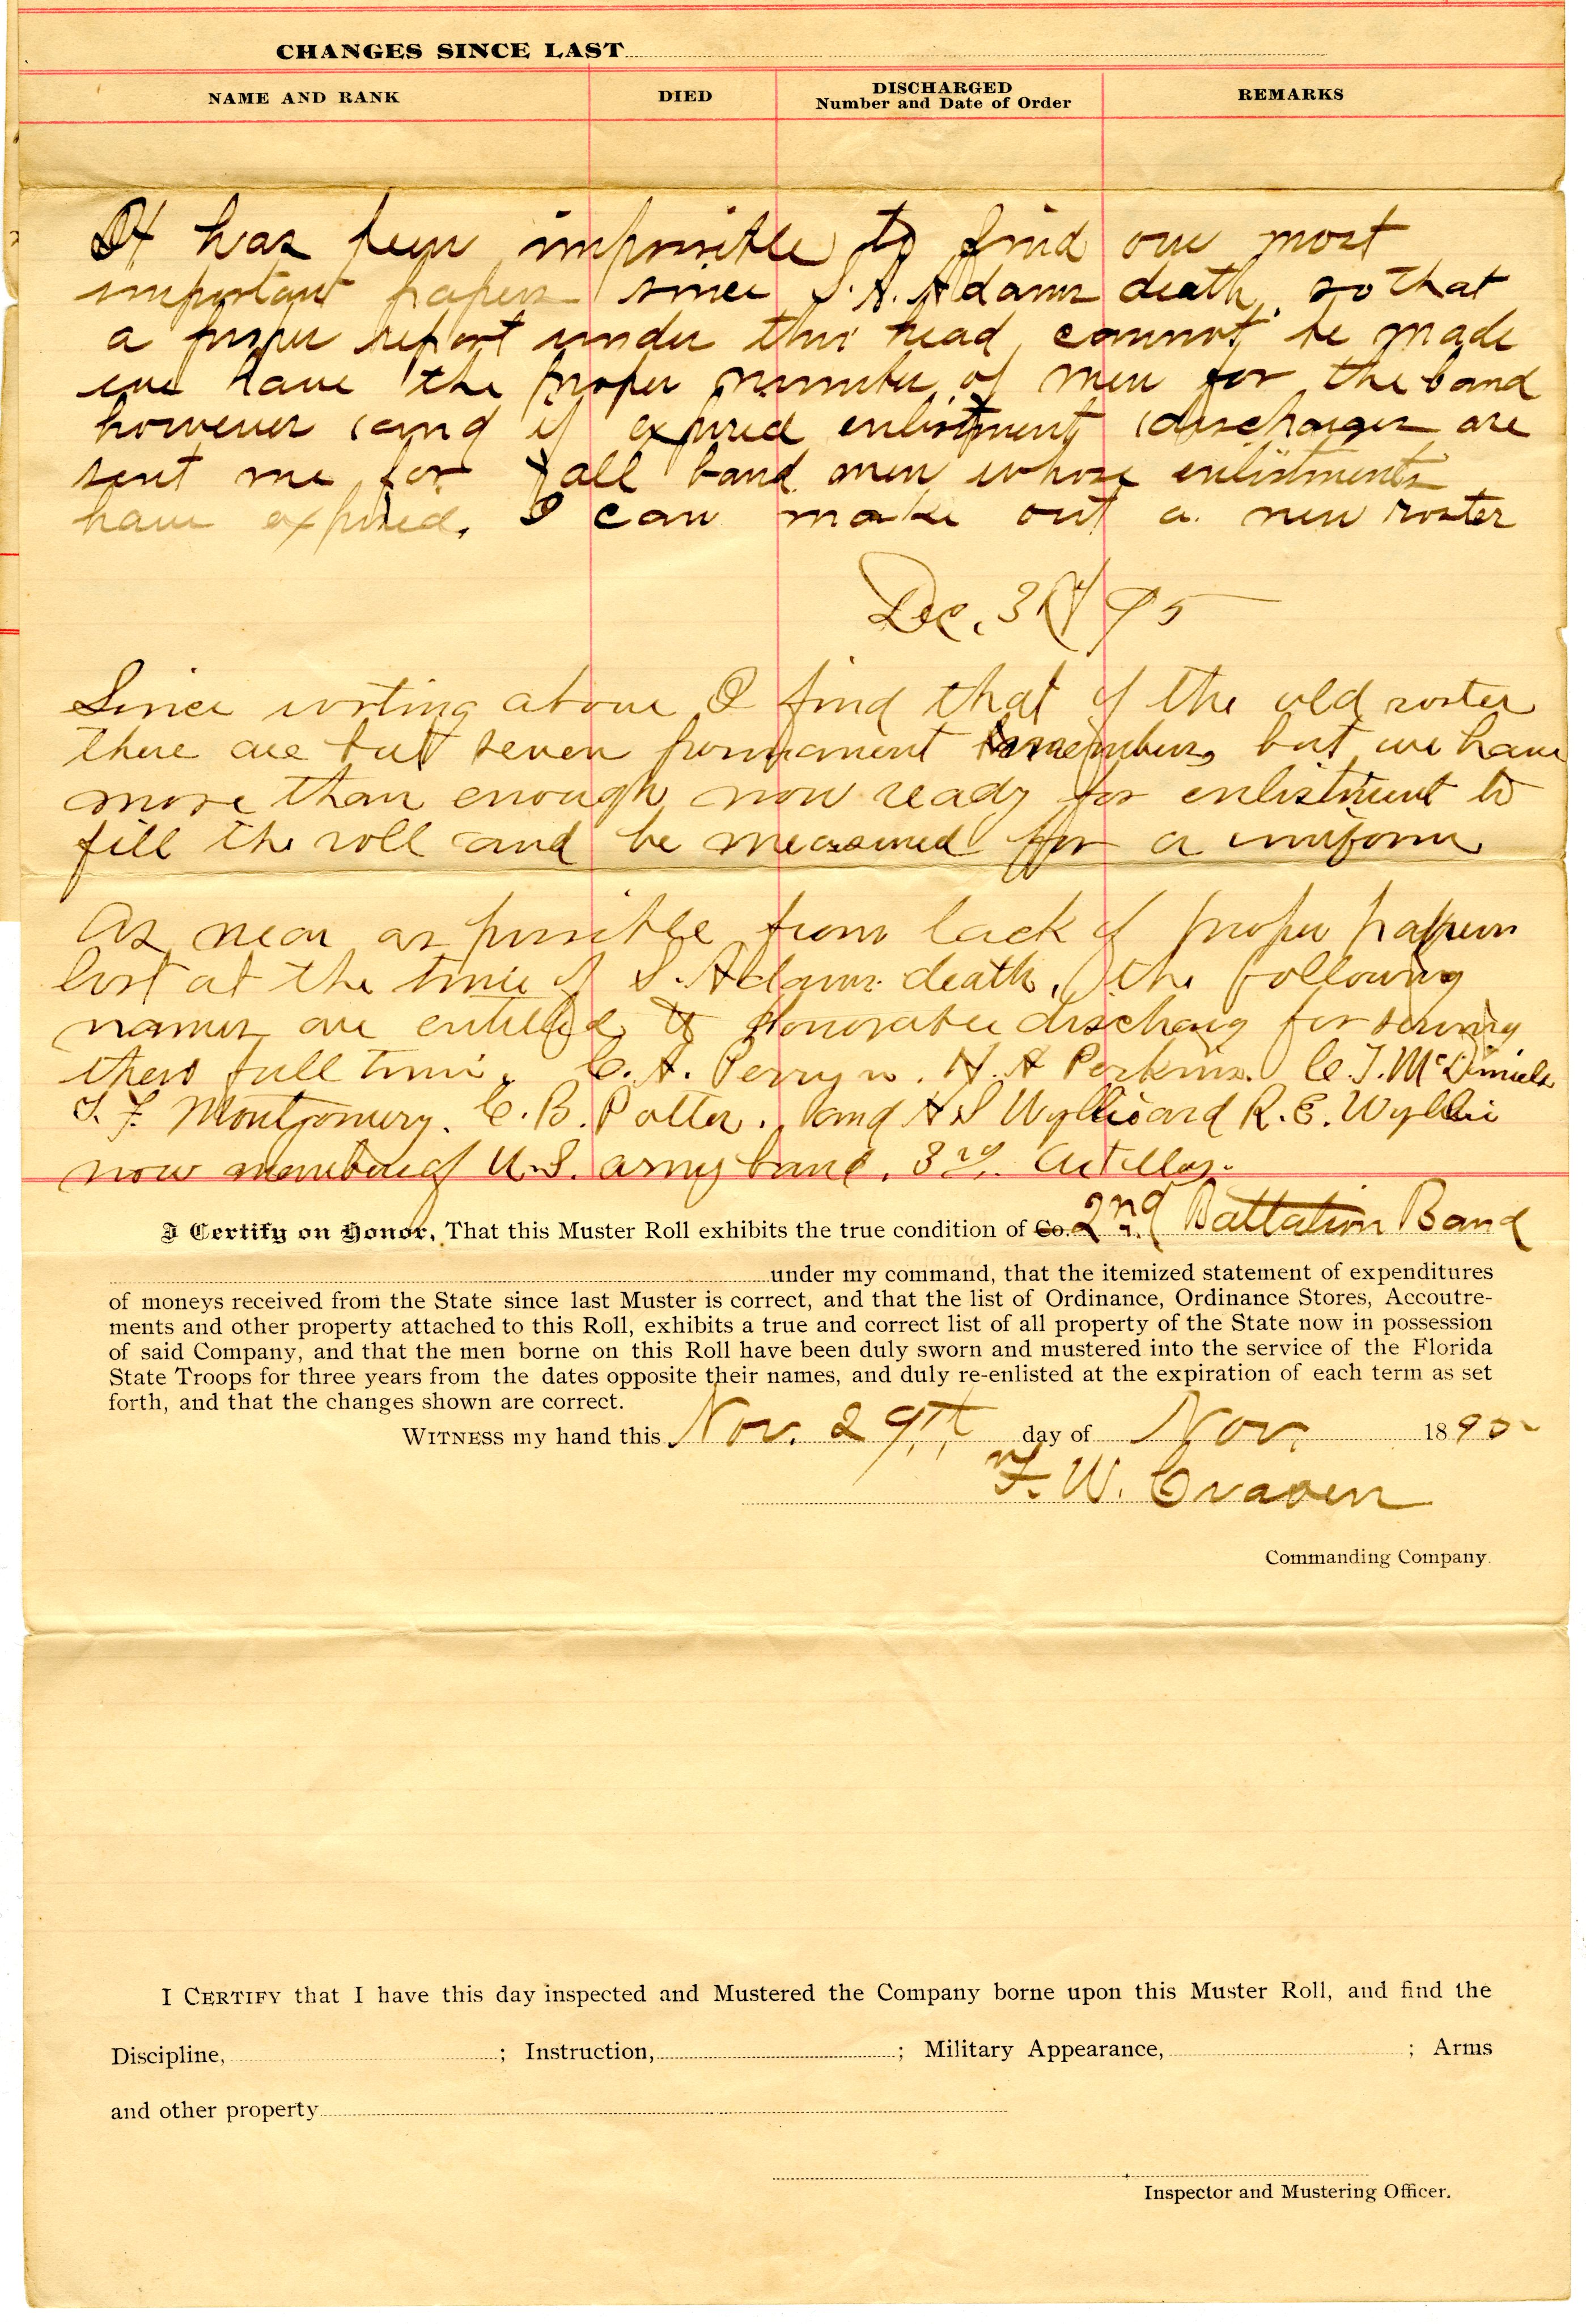 CHANGES SINCE LAST
NAME AND RANK DIED DISCHARGED Number and Date of Order REMARKS
It has been impossible to find our most
important papers since S. A. Adams death, so that
a proper report under this head cannot be made
we have the proper number of men for the band
however and if expired enlistment discharges are
sent me for all band men whose enlistments
have expired, I can make out a new roster
Dec. 95
Since writing above I find that of the old roster
there are but seven permanent members, but we have
more than enough now ready for enlistment to
fill the roll and be measured for a uniform
As near as possible from lack of proper papers
lost at the time of S. Adams death, the following
names are entitled to honorable discharg for serving
full time. C. A. Perryn. H. A Perkins. C. J. McDiniels
S. F. Montgomery. C. B. Potter. and A S Wyllie and R. E. Wyllie
now member of U.S. army band, 3rd. Artillery.
I Certify on Honor, That this Muster Roll exhibits the true condition of Co. 2nd Battalion Band
under my command, that the itemized statement of expenditures
of moneys received from the State since last Muster is correct, and that the list of Ordinance, Ordinance Stores, Accoutre-
ments and other property attached to this Roll, exhibits a true and correct list of all property of the State now in possession
of said Company, and that the men borne on this Roll have been duly sworn and mustered into the service of the Florida
State Troops for three years from the dates opposite their names, and duly re-enlisted at the expiration of each term as set
forth, and that the changes shown are correct.
WITNESS my hand this Nov. 29th day of Nov. 1895
F. W. Craven
Commanding Company.
I CERTIFY that I have this day inspected and Mustered the Company borne upon this Muster Roll, and find the
Discipline, ; Instruction, ; Military Appearance, ; Arms
and other property
Inspector and Mustering Officer.